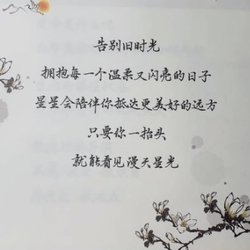 告别旧时光
拥抱每一个温柔又闪亮的日子
星星会陪伴你抵达更美好的远方
只要你一抬头
就能看见漫天星光